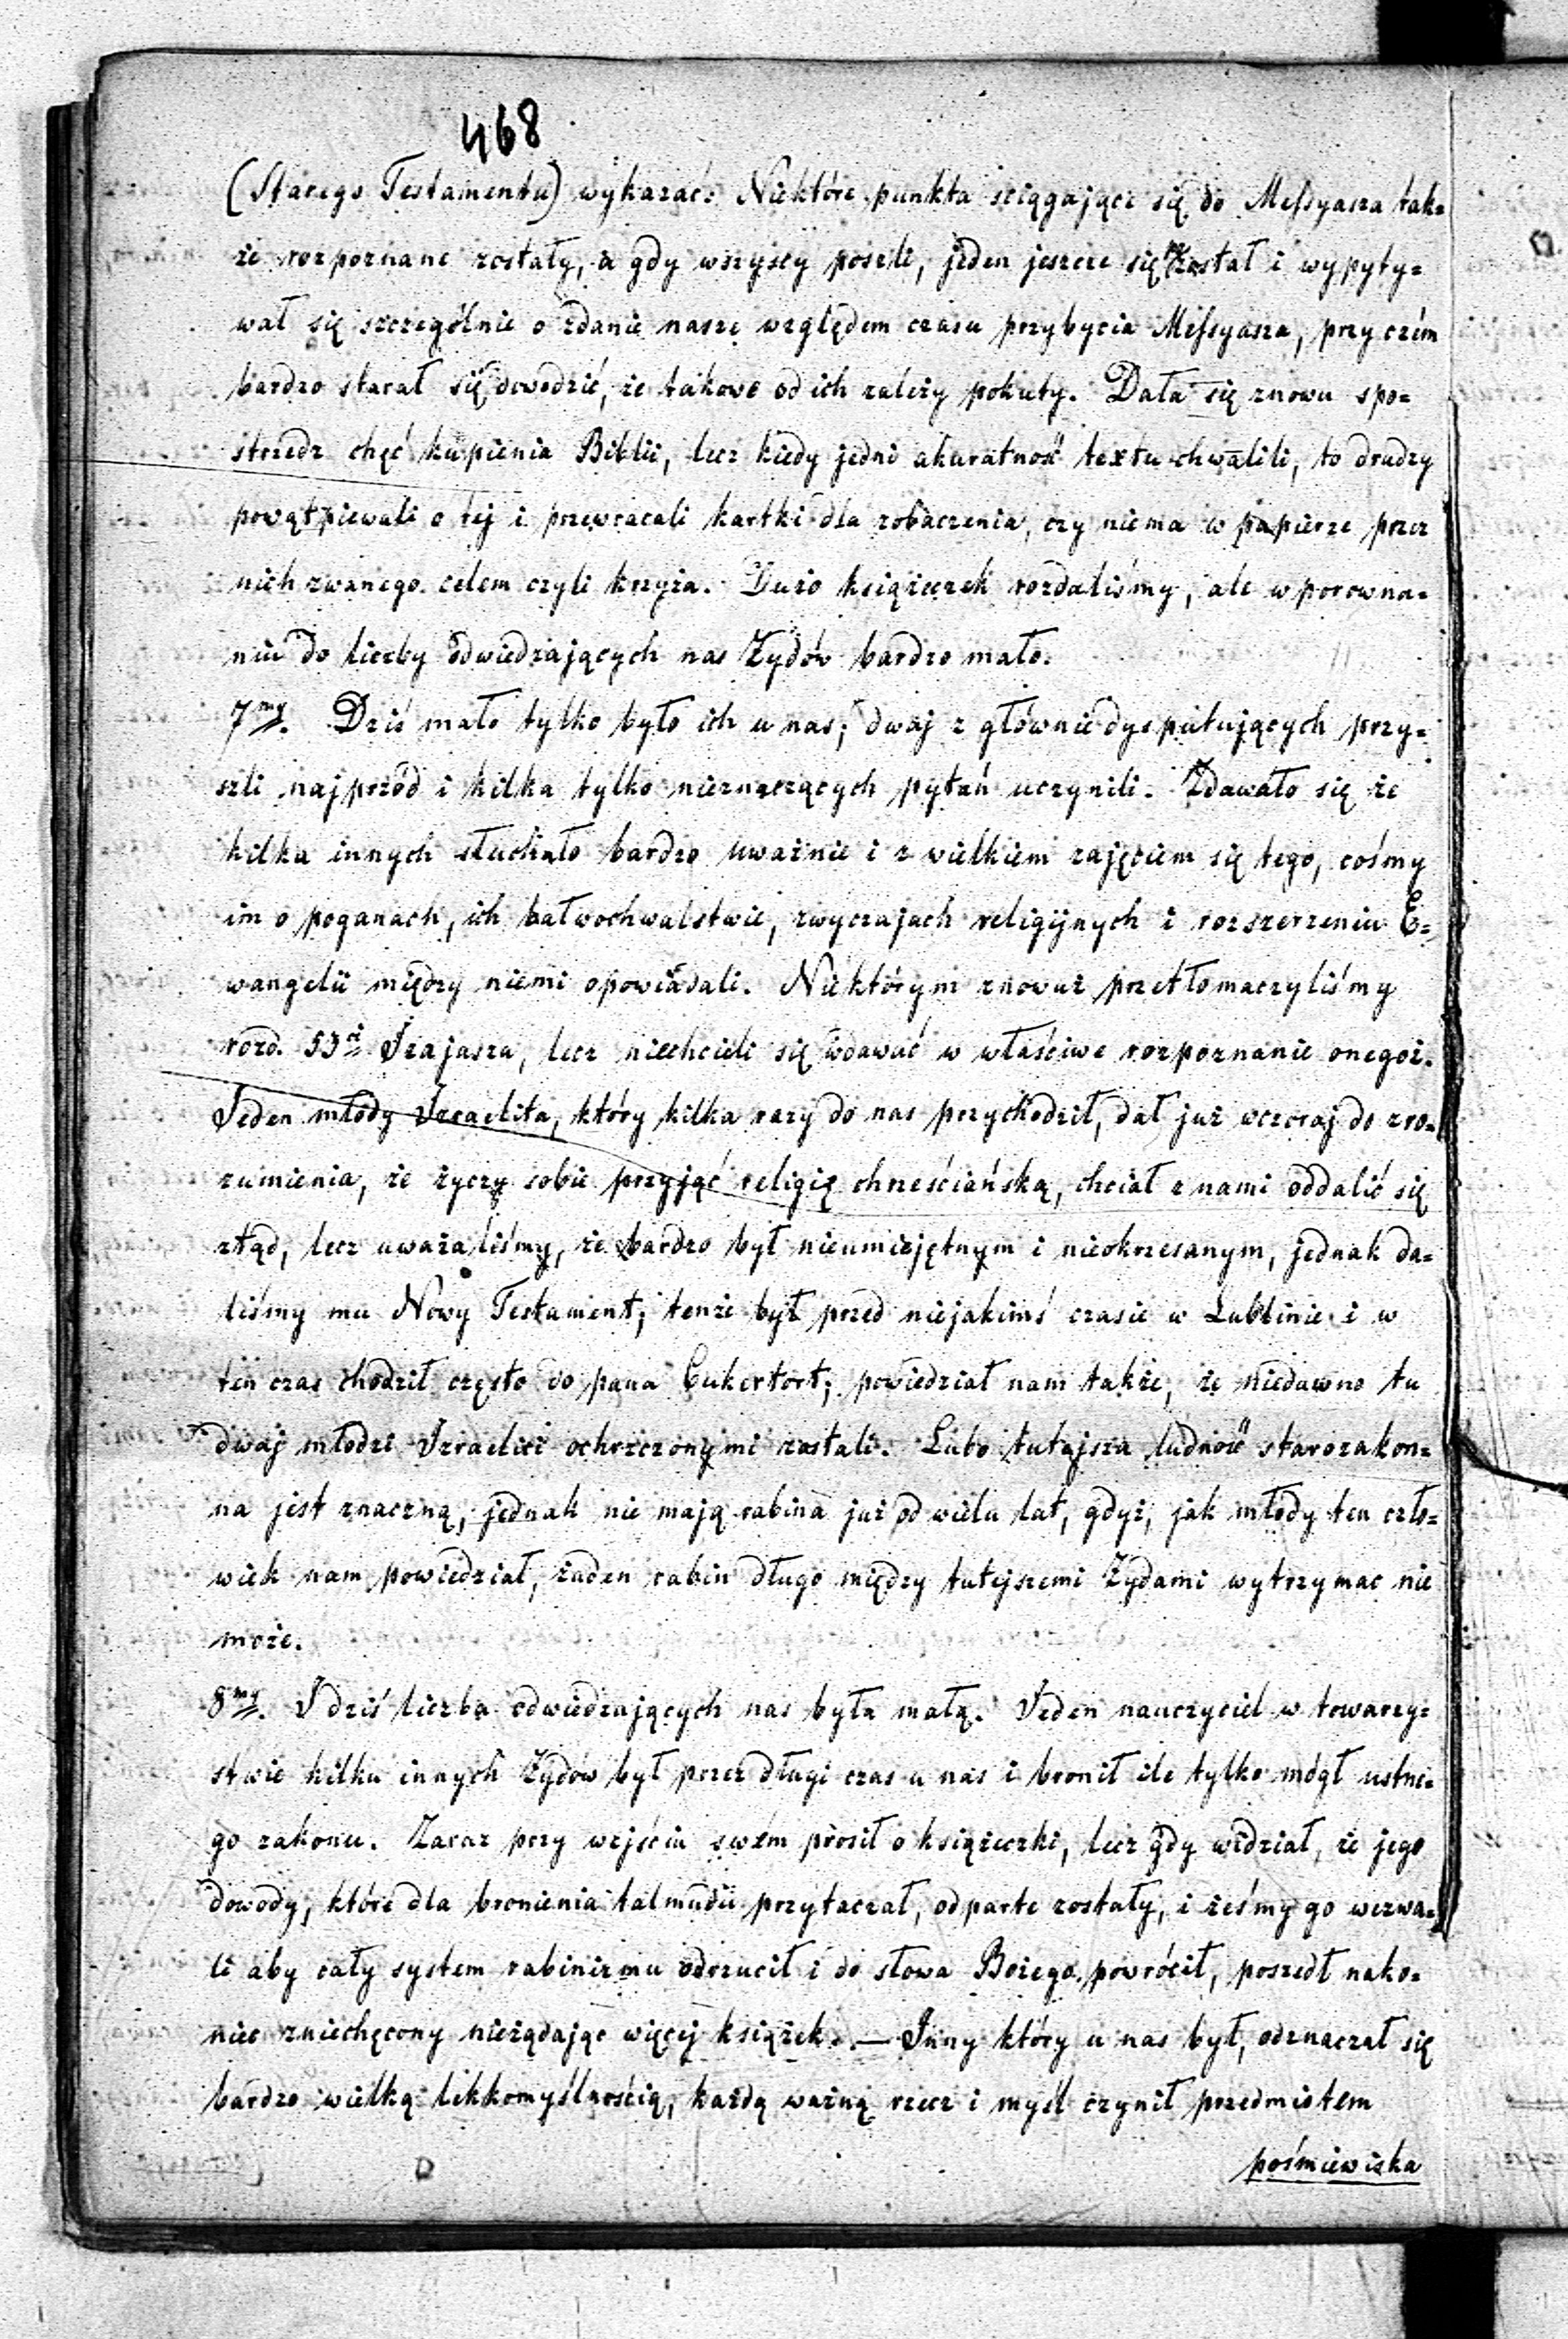 468
(Starego Testamentu) wykazać. Niektóre punkta ściągające się do Messyasza tak=
że rozpoznane zostały, a gdy wszyscy poszli, jeden jeszcze się został i wypyty=
wał się szczególnie o zdanie nasze względem czasu przybycia Messyasza, przy czém
bardzo starał się dowodzić, że takowe od ich zależy pokuty. Dała się znowu spo=
strzedz chęć kupienia Biblii, lecz kiedy jedni akuratność textu chwalili, to drudzy
powątpiewali o tej i przewracali kartki dla zobaczenia, czy niema w papierze przez
nich zwanego celem czyli krzyża. Dużo książeczek rozdaliśmy, ale w porowna=
niu do liczby odwiedzających nas Żydów bardzo mało.
7my. Dziś mało tylko było ich u nas; dwaj z głównie dysputujących przy=
szli najprzód i kilka tylko nieznaczących pytań uczynili. Zdawało się że
kilka innych słuchało bardzo uważnie i z wielkiem zajęciem się tego, cośmy
im o poganach, ich bałwochwalstwie, zwyczajach religijnych i rozszerzeniu E=
wangelii między niemi opowiadali. Niektórym znowuż przetłomaczyliśmy
rozd. 53ci Izajasza, lecz niechcieli się wdawać w właściwe rozpoznanie onegoż.
Jeden młody Izraelita, który kilka razy do nas przychodził, dał już wczoraj do zro=
zumienia, że życzy sobie przyjąć religię chrześciańską, chciał z nami oddalić się
ztąd, lecz uważaliśmy, że bardzo był nieumiejętnym i nieokrzesanym, jednak da=
liśmy mu Nowy Testament; tenże był przed niejakimś czasie w Lublinie i w
ten czas chodził często do pana Cukertort; powiedział nam także, że niedawno tu
dwaj młodzi Izraelici ochrzczonymi zostali. Lubo tutejsza ludność starozakon=
na jest znaczną, jednak nie mają rabina już od wielu lat, gdyż, jak młody ten czło=
wiek nam powiedział, żaden rabin długo między tutejszemi Żydami wytrzymac nie
może.
8my. I dziś liczba odwiedzających nas była małą. Jeden nauczyciel w towarzy=
stwie kilku innych Żydów był przez długi czas u nas i bronił ile tylko mógł ustne=
go zakonu. Zaraz przy wejściu swém prosił o książeczki, lecz gdy widział, że jego
dowody, które dla bronienia talmudu przytaczał, odparte zostały, i żeśmy go wezwa=
li aby cały system rabinizmu odrzucił i do słowa Bożego powrócił, poszedł nako=
niec zniechęcony nieżądając więcej książek. — Inny który u nas był, odznaczał się
bardzo wielką lekkomyślnością, każdą ważną rzecz i myśl czynił przedmiotem
pośmiewiska